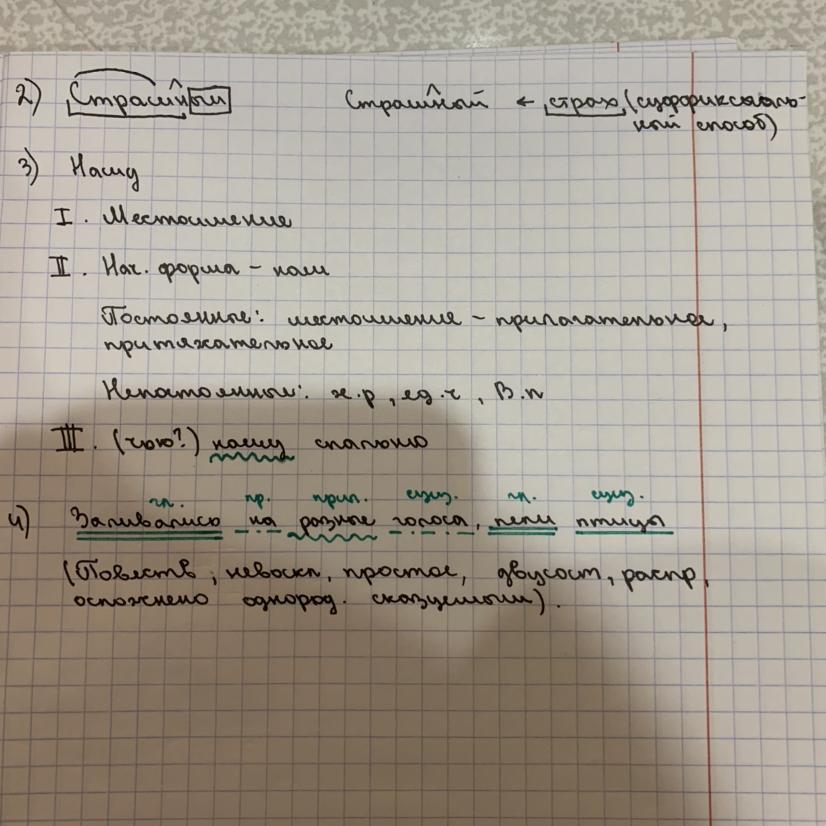 2) Страшный Страшный ← страх (суффиксаль-
ный способ)
3) Нашу
I. Местоимение
II. Нач. форма - наш
Постоянные: местоимение - прилагательное,
притяжательное
Непостоянные: ж.р, ед.ч, В.п
III. (чью?) нашу спальню
гл. пр. прил. сущ. гл. сущ.
4) Заливались на разные голоса, пели птицы
(Повеств, невоскл, простое, двусост, распр,
осложнено однород. сказуемыми).